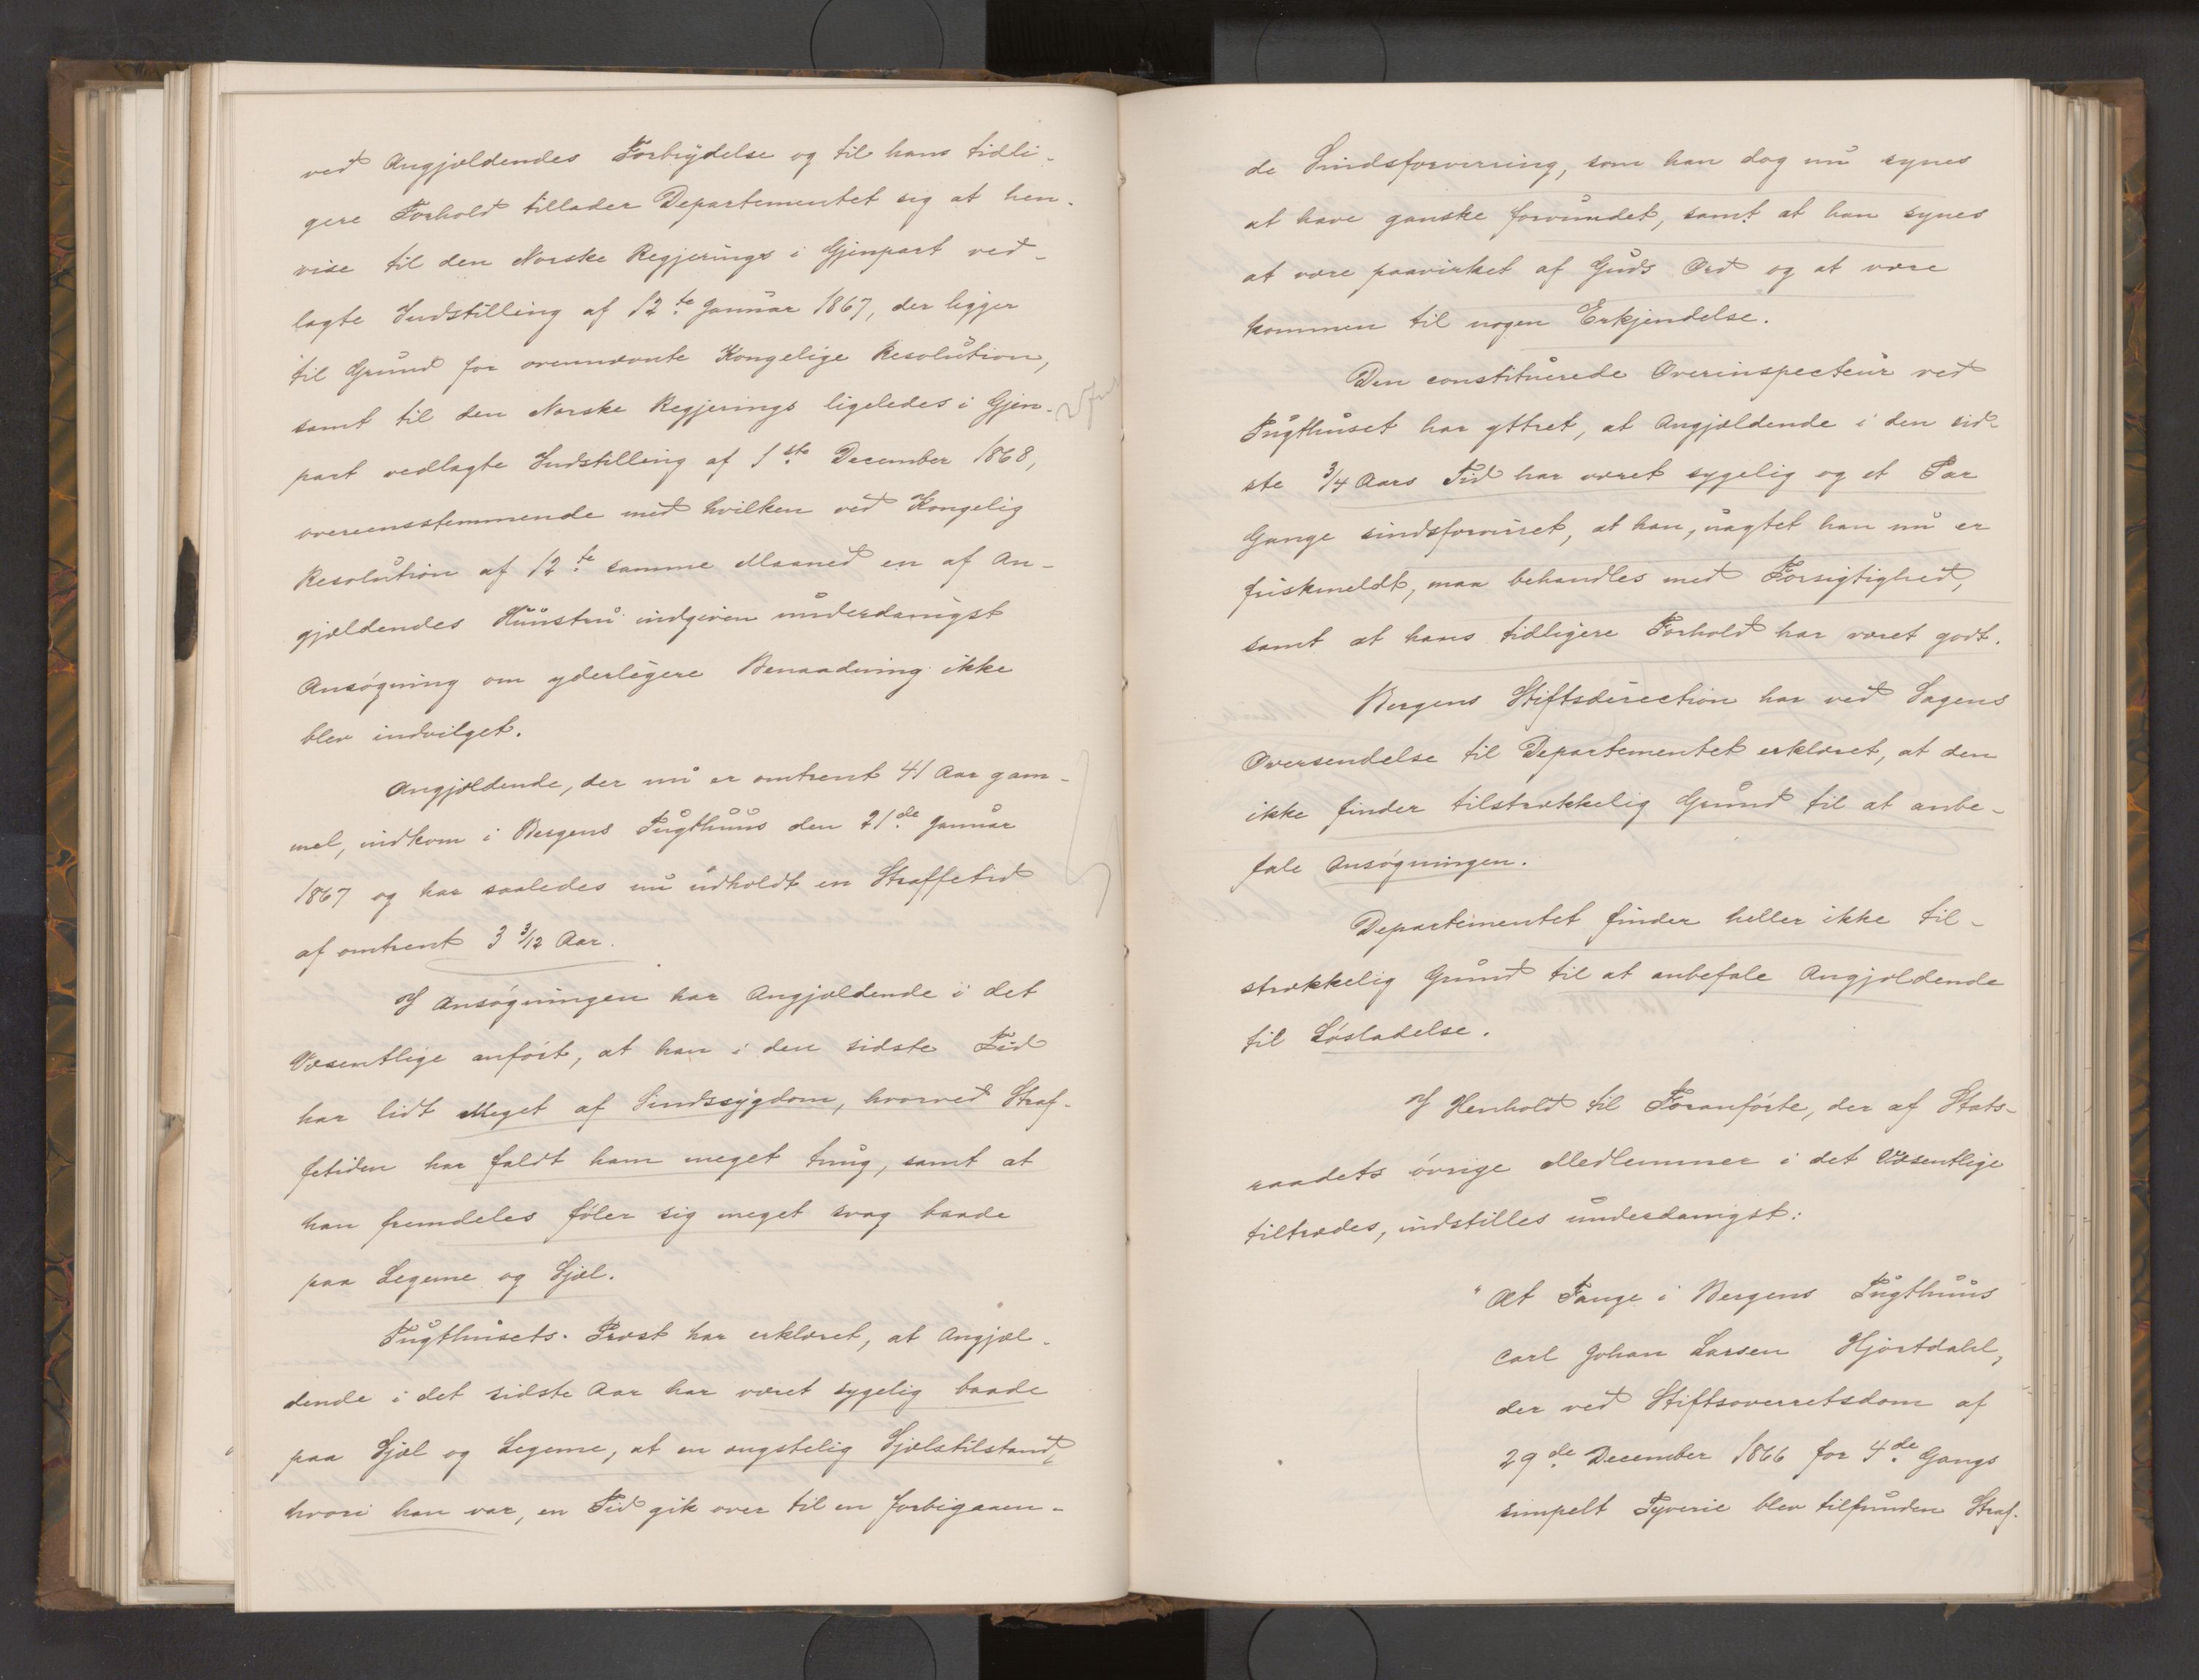 ved Angjældendes Forbrydelse og til hans tidli-
gere Forhold tillader Departementet sig at hen-
vise til den Norske Regjerings i Gjenpart ved-
lagte Indstilling af 12te Januar 1867, der ligger
til Grund for ovennævnte Kongelige Resolution,
samt til den Norske Regjerings ligeledes i Gjen-
part vedlagte Indstilling af 1ste December 1868,
overensstemmende med hvilken ved Kongelig
Resolution af 12te samme Maaned en af An-
gjældendes Huustru indgiven underdanigst
Ansøgning om yderligere Benaadning ikke
blev indvilget.
Angjældende, der nu er omtrent 41 Aar gam-
mel, indkom i Bergens Tugthuus den 21de Januar
1867 og har saaledes nu udholdt en Straffetid
af omtrent 3 3/12 Aar.
I Ansøgningen har Angjældende i det
Væsentlige anført, at han i den sidste Tid
har lidt Meget af Sindssygdom, hvorved Straf-
fetiden har faldt ham meget tung, samt at
han fremdeles føler sig meget svag baade
paa Legeme og Sjæl.
Tugthusets Præst har erklæret, at Angjæl-
dende i det sidste Aar har været sygelig baade
paa Sjæl og Legeme, at en ængstelig Sjælstilstand,
hvori han var, en Tid gik over til en forbigaaen-
de Sindsforvirring, som han dog nu synes
at have ganske forvundet, samt at han synes
at være paavirket af Guds Ord og at være
kommen til nogen Erkjendelse.
Den constituerede Overinspecteur ved
Tugthuset har yttret, at Angjældende i den sid-
ste 3/4 Aars Tid har været sygelig og et Par
Gange sindsforvirret, at han, uagtet han nu er
friskmeldt, maa behandles med Forsigtighed,
samt at hans tidligere Forhold har været godt.
Bergens Stiftsdirection har ved Sagens
Oversendelse til Departementet erklæret, at den
ikke finder tilstrækkelig Grund til at anbe-
fale Ansøgningen.
Departementet finder heller ikke til-
strækkelig Grund til at anbefale Angjældende
til Løsladelse.
I Henhold til Foranførte, der af Stats-
raadets øvrige Medlemmer i det Væsentlige
tiltrædes, indstilles underdanigst:
"At Fange i Bergens Tugthuus
Carl Johan Larsen Hjortdahl,
der ved Stiftsoverretsdom af
29de December 1866 for 4de Gangs
simpelt Tyverie blev tilfunden Straf-